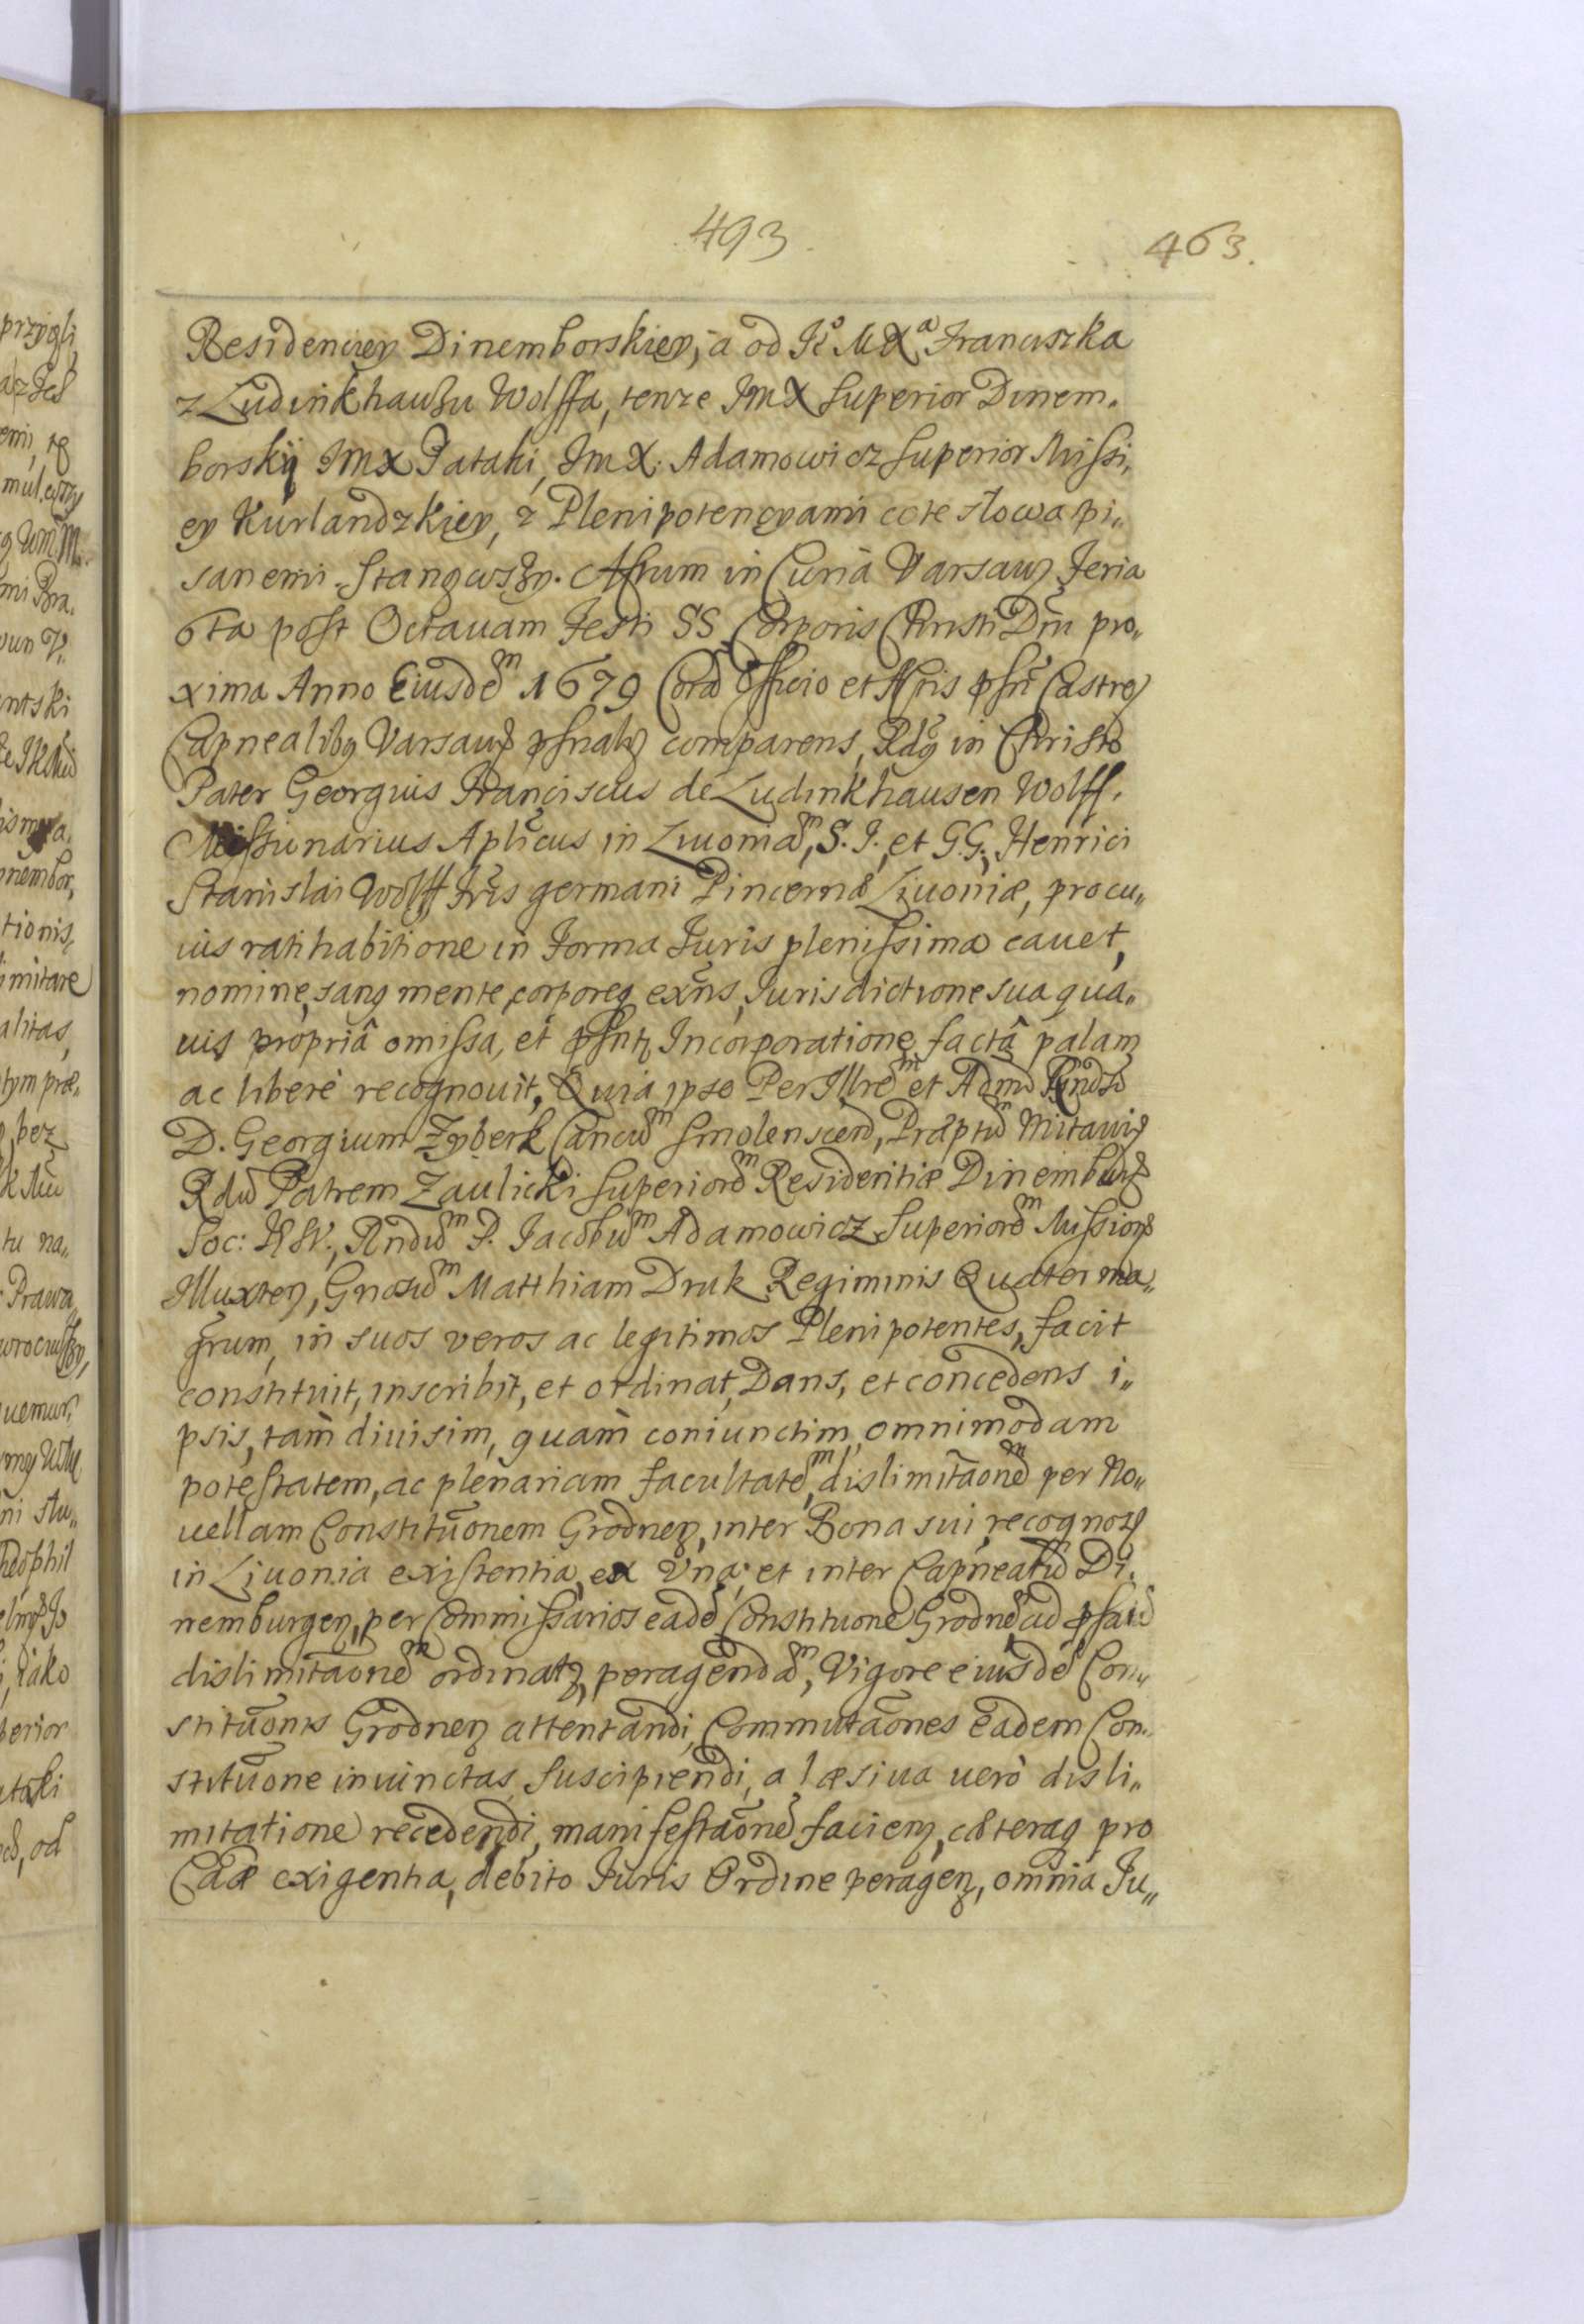 493.
463.
Residencyey Dinemborskiey, a od Je° M X^a Franciszka
z Ludinkhauſzu Wolffa, tenze Jm X Superior Dinem„
borskij Jmx Pataki, Jm X. Adamowicz Superior Miſsi„
ey Kurlandzkiey, z Plenipotencyami co te słowa pi„
sanemi. Stanąwszy. Actum in Curia Varsavię Feria
6ta post Octavam Festi SS Corporis Christi Dni pro„
xima Anno Eiusdem 1679 Corã Officio et Actis
Capnealibq Varsavię comparens, Rdq in Christo
Pater Georgius Franciscus de Ludinkhausen Wolff.
Miſsionarius Aplicus in Livoniam, S. J. et G. G. Henrici
Stanislai Wolff Fris germani Pincernæ Livoniæ, pro cu„
ius ratihabitione in Forma Juris pleniſsima cavet,
nomine, sanq mente, corporeq exñs, Jurisdictione sua qua„
vis propriâ omiſsa, et Incorporatione factâ palam
ac liberè recognovit, Quia ipse Per Illrem et Admd Rndũ
D. Georgium Zyberk Cancum Smolenscen, Præptum Mitavię
Rdũ Patrem Zaulicki Superiorem Residentiæ Dinemburg
Soc: JESV., Rndum P. Jacobum Adamowicz Superiorem Miſsionę
Illuxten, Gnosum Matthiam Druk Regiminis Quatermа„
grum, in suos veros ac legitimos Plenipotentes, facit
constituit, inscribit, et ordinat, Dans, et concedens i„
psis, tam divisim, quàm coniunctim, omnimodam
potestatem, ac plenariam facultatem, dislimitãonem per No„
vellam Constitũonem Grodnen, inter Bona sui recognoscę
in Livonia existentia, ex Vna; et inter Capneatũ Di„
nemburgen, per Commiſsarios eadẽ Constitũone Grodnẽ ad
dislimitãonem ordinatę, peragendam, Vigore eiusdẽ Con„
stitũonis Grodnen attentandi, Commutãones eadem Con„
stitũone iniunctas, Suscipiendi, a læsiva verò disli„
mitatione recedendi, manifestãonẽ facien, cæteraq pro
Cãæ exigentia, debito Juris Ordine peragen, omnia Ju„